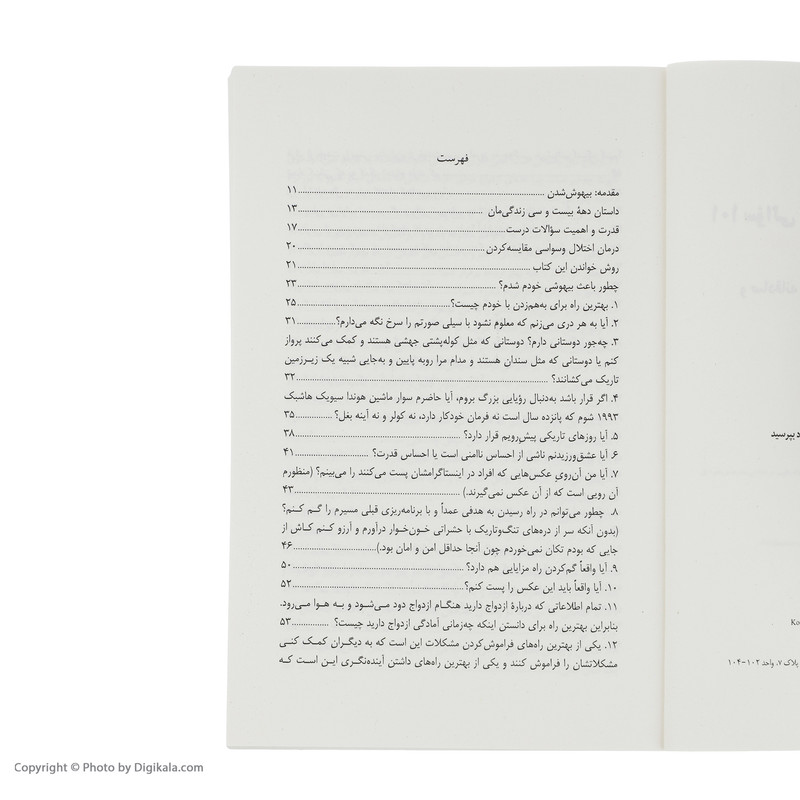 فهرست
مقدمه: بیهوش‌شدن ... ۱۱
داستان دههٔ بیست و سی زندگی‌مان ... ۱۳
قدرت و اهمیت سؤالات درست ... ۱۷
درمان اختلال وسواسی مقایسه‌کردن ... ۲۰
روش خواندن این کتاب ... ۲۱
چطور باعث بیهوشی خودم شدم؟ ... ۲۳
۱. بهترین راه برای به‌هم‌زدن با خودم چیست؟ ... ۲۵
۲. آیا به هر دری می‌زنم که معلوم نشود با سیلی صورتم را سرخ نگه می‌دارم؟ ... ۳۱
۳. چه‌جور دوستانی دارم؟ دوستانی که مثل کوله‌پشتی جهشی هستند و کمک می‌کنند پرواز
کنم یا دوستانی که مثل سندان هستند و مدام مرا روبه پایین و به‌جایی شبیه یک زیرزمین
تاریک می‌کشانند؟ ... ۳۲
۴. اگر قرار باشد به‌دنبال رؤیایی بزرگ بروم، آیا حاضرم سوار ماشین هوندا سیویک هاشبک
۱۹۹۳ شوم که پانزده سال است نه فرمان خودکار دارد، نه کولر و نه آینه بغل؟ ... ۳۵
۵. آیا روزهای تاریکی پیشِ‌رویم قرار دارد؟ ... ۳۸
۶. آیا عشق‌ورزیدنم ناشی از احساس ناامنی است یا احساس قدرت؟ ... ۴۱
۷. آیا من آن‌رویِ عکس‌هایی که افراد در اینستاگرامشان پست می‌کنند را می‌بینم؟ (منظورم
آن رویی است که از آن عکس نمی‌گیرند.) ... ۴۳
۸. چطور می‌توانم در راه رسیدن به هدفی عمداً و با برنامه‌ریزی قبلی مسیرم را گم کنم؟
(بدون آنکه سر از دره‌های تنگ‌وتاریک با حشراتی خون‌خوار درآورم و آرزو کنم کاش از
جایی که بودم تکان نمی‌خوردم چون آنجا حداقل امن و امان بود.) ... ۴۶
۹. آیا واقعاً گم‌کردن راه مزایایی هم دارد؟ ... ۵۰
۱۰. آیا واقعاً باید این عکس را پست کنم؟ ... ۵۲
۱۱. تمام اطلاعاتی که دربارهٔ ازدواج دارید هنگام ازدواج دود می‌شود و به هوا می‌رود.
بنابراین بهترین راه برای دانستن اینکه چه‌زمانی آمادگی ازدواج دارید چیست؟ ... ۵۳
۱۲. یکی از بهترین راه‌های فراموش‌کردن مشکلات این است که به دیگران کمک کنی
مشکلاتشان را فراموش کنند و یکی از بهترین راه‌های داشتن آینده‌نگری این است که
د بپرسید
Ko
پلاک ۷، واحد ۱۰۲-۱۰۴
Copyright © Photo by Digikala.com